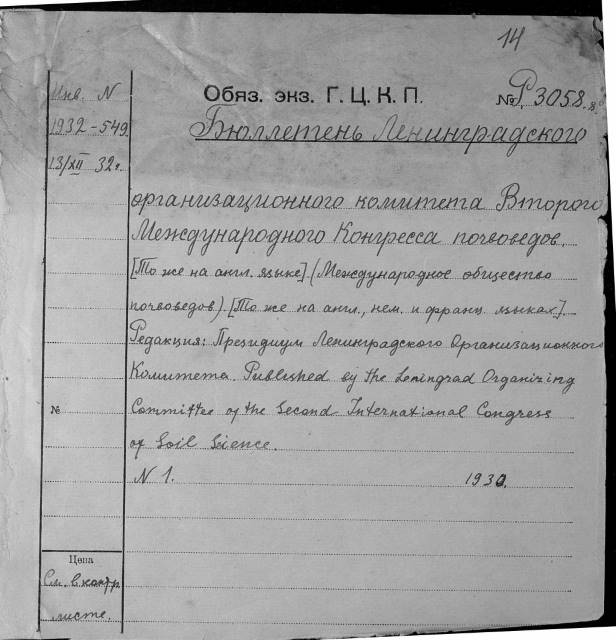 14
Обяз. экз. Г. Ц. К. П. № Р. 3058.
Инв. N
1932-549
13/XII 32 г.
Бюллетень Ленинградского
организационного комитета Второго
Международного Конгресса почвоведов.
[То же на англ. языке] (Международное общество
почвоведов). [То же на англ., нем. и франц. языках].
Редакция: Президиум Ленинградского Организационного
Комитета. Published by the Leningrad Organizing
№ Committee of the Second International Congress
of Soil Science.
N 1. 1930.
Цена
См. в контр.
листе.